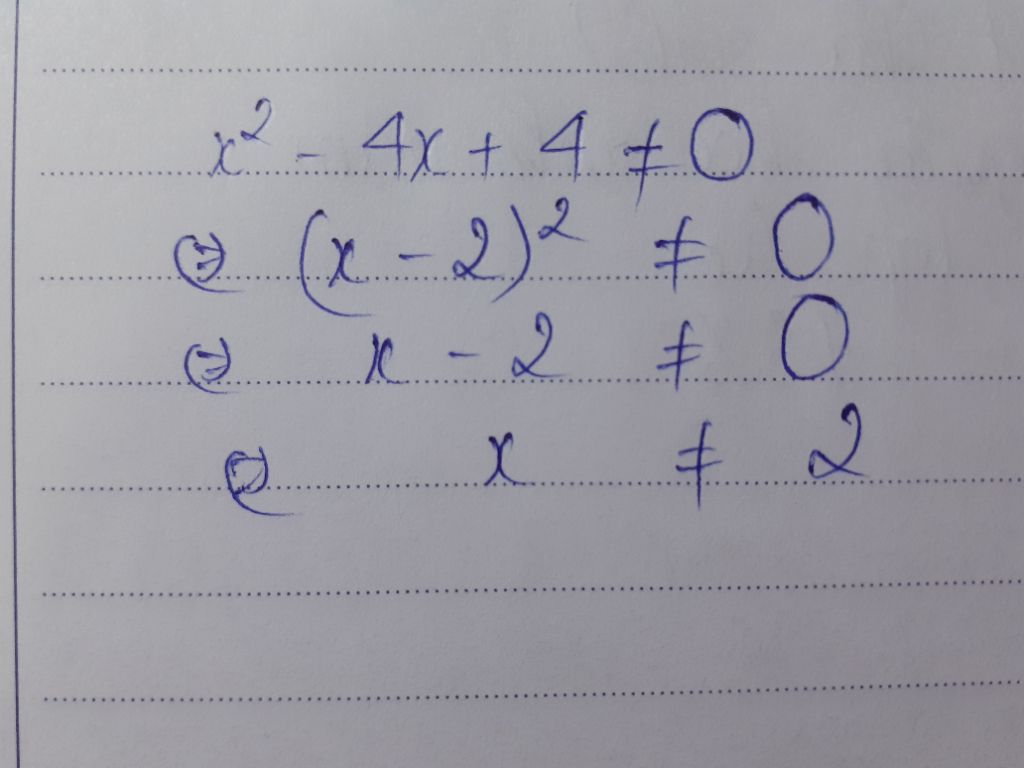 x² - 4x + 4 ≠ 0
⇔ (x - 2)² ≠ 0
⇔ x - 2 ≠ 0
⇔ x ≠ 2